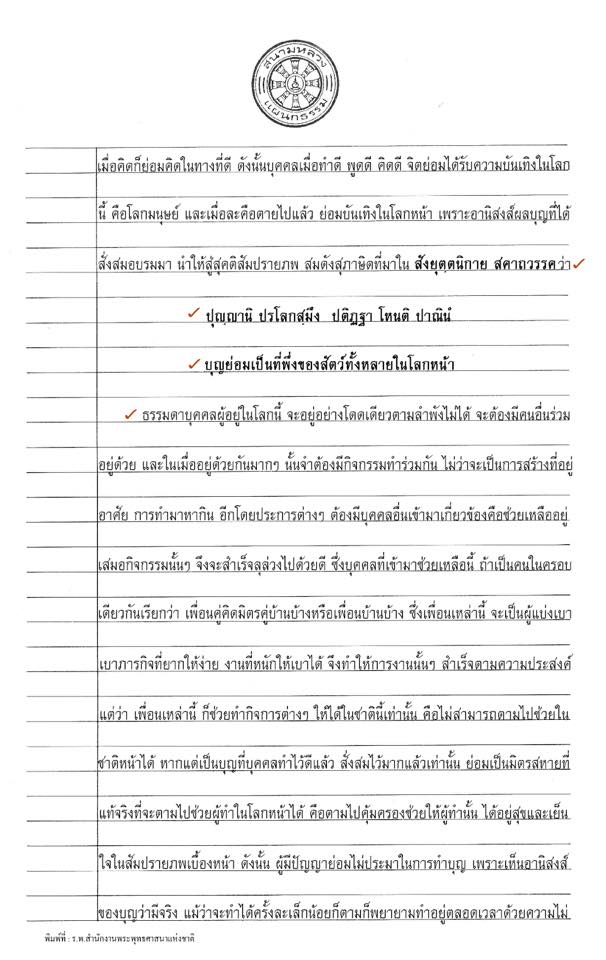 สนามหลวง
แผนกธรรม
เมื่อคิดก็ย่อมคิดในทางที่ดี ดังนั้นบุคคลเมื่อทำดี พูดดี คิดดี จิตย่อมได้รับความบันเทิงในโลก
นี้ คือโลกมนุษย์ และเมื่อละคือตายไปแล้ว ย่อมบันเทิงในโลกหน้า เพราะอานิสงส์ผลบุญที่ได้
สั่งสมอบรมมา นำให้สู่สุคติสัมปรายภพ สมดังสุภาษิตที่มาใน สังยุตตนิกาย สคาถวรรคว่า
ปุญฺญานิ ปรโลกสฺมึง ปติฏฺฐา โหนติ ปาณินํ
บุญย่อมเป็นที่พึ่งของสัตว์ทั้งหลายในโลกหน้า
ธรรมดาบุคคลผู้อยู่ในโลกนี้ จะอยู่อย่างโดดเดียวตามลำพังไม่ได้ จะต้องมีคนอื่นร่วม
อยู่ด้วย และในเมื่ออยู่ด้วยกันมากๆ นั้นจำต้องมีกิจกรรมทำร่วมกัน ไม่ว่าจะเป็นการสร้างที่อยู่
อาศัย การทำมาหากิน อีกโดยประการต่างๆ ต้องมีบุคคลอื่นเข้ามาเกี่ยวข้องคือช่วยเหลืออยู่
เสมอกิจกรรมนั้นๆ จึงจะสำเร็จลุล่วงไปด้วยดี ซึ่งบุคคลที่เข้ามาช่วยเหลือนี้ ถ้าเป็นคนในครอบ
เดียวกันเรียกว่า เพื่อนคู่คิดมิตรคู่บ้านบ้างหรือเพื่อนบ้านบ้าง ซึ่งเพื่อนเหล่านี้ จะเป็นผู้แบ่งเบา
เบาภารกิจที่ยากให้ง่าย งานที่หนักให้เบาได้ จึงทำให้การงานนั้นๆ สำเร็จตามความประสงค์
แต่ว่า เพื่อนเหล่านี้ ก็ช่วยทำกิจการต่างๆ ให้ได้ในชาตินี้เท่านั้น คือไม่สามารถตามไปช่วยใน
ชาติหน้าได้ หากแต่เป็นบุญที่บุคคลทำไว้ดีแล้ว สั่งสมไว้มากแล้วเท่านั้น ย่อมเป็นมิตรสหายที่
แท้จริงที่จะตามไปช่วยผู้ทำในโลกหน้าได้ คือตามไปคุ้มครองช่วยให้ผู้ทำนั้น ได้อยู่สุขและเย็น
ใจในสัมปรายภพเบื้องหน้า ดังนั้น ผู้มีปัญญาย่อมไม่ประมาในการทำบุญ เพราะเห็นอานิสงส์
ของบุญว่ามีจริง แม้ว่าจะทำได้ครั้งละเล็กน้อยก็ตามก็พยายามทำอยู่ตลอดเวลาด้วยความไม่
พิมพ์ที่ : ร.พ.สำนักงานพระพุทธศาสนาแห่งชาติ